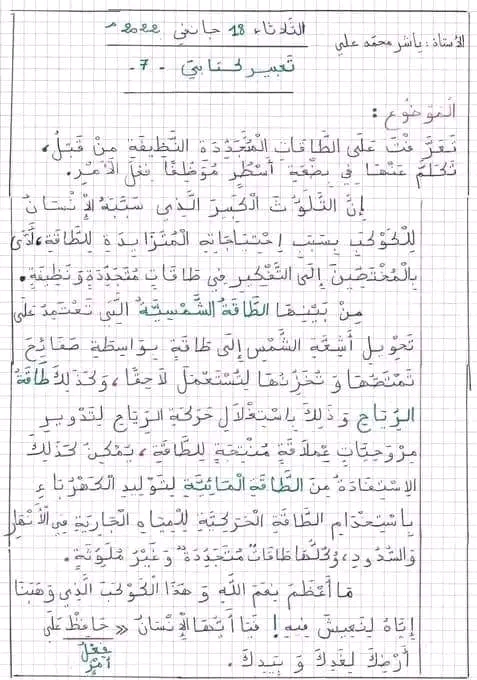 الثلاثاء 18 جانفي 2022 م
الأستاذ: ياشر محمد علي
تعبير كتابي - 7 -
الموضوع:
تعرّفت على الطاقات المتجددة النظيفة من قبل،
تكلم عنها في بضعة أسطر موظفا فعل الأمر.
إنّ التلوث الكبير الذي سببه الإنسان
للكوكب بسبب احتياجاته المتزايدة للطاقة، أدى
بالمختصين إلى التفكير في طاقات متجددة ونظيفة.
من بينها الطاقة الشمسية التي تعتمد على
تحويل أشعة الشمس إلى طاقة بواسطة صفائح
تمتصها و تخزنها لتستعمل لاحقا، وكذلك طاقة
الرياح وذلك باستغلال حركة الرياح لتدوير
مروحيات عملاقة منتجة للطاقة، يمكن كذلك
الاستفادة من الطاقة المائية لتوليد الكهرباء
باستخدام الطاقة الحركية للمياه الجارية في الأنهار
والسدود، وكلها طاقات متجددة وغير ملوثة.
ما أعظم نعم الله و هذا الكوكب الذي وهبنا
إياه لنعيش فيه! فيا أيها الإنسان « حافظ على
أرضك لغدك و بيدك.
فعل
أمر